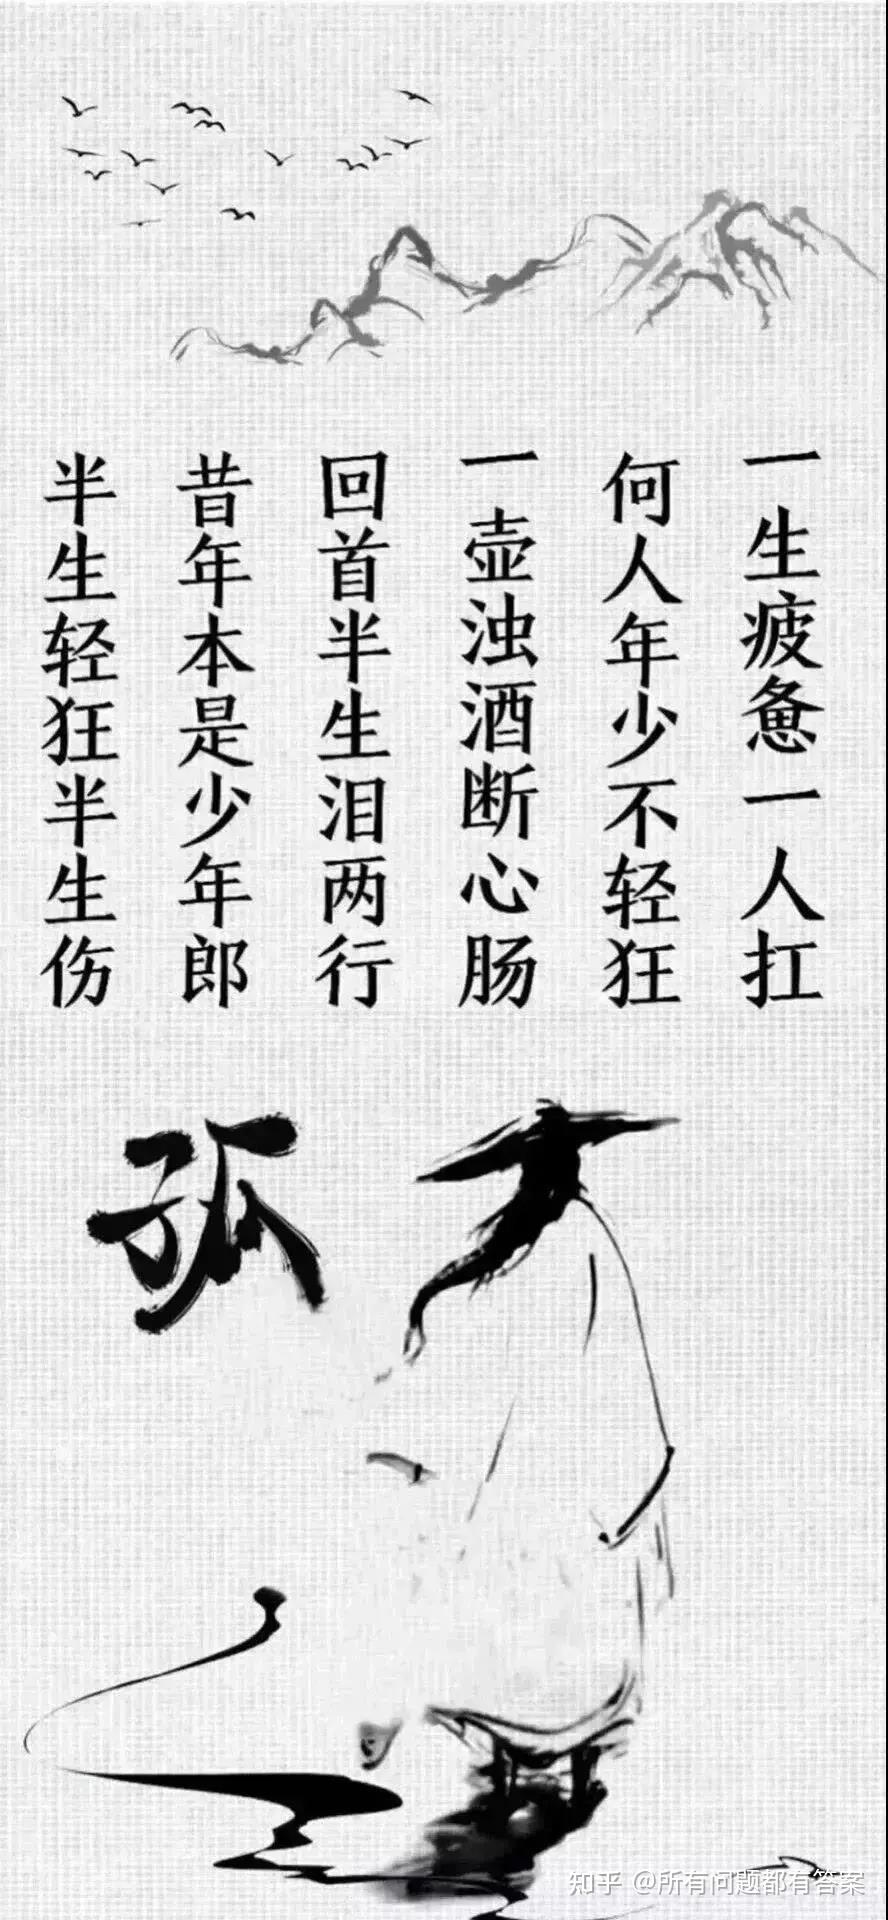 一生疲惫一人扛
何人年少不轻狂
一壶浊酒断心肠
回首半生泪两行
昔年本是少年郎
半生轻狂半生伤
孤
知乎 @所有问题都有答案